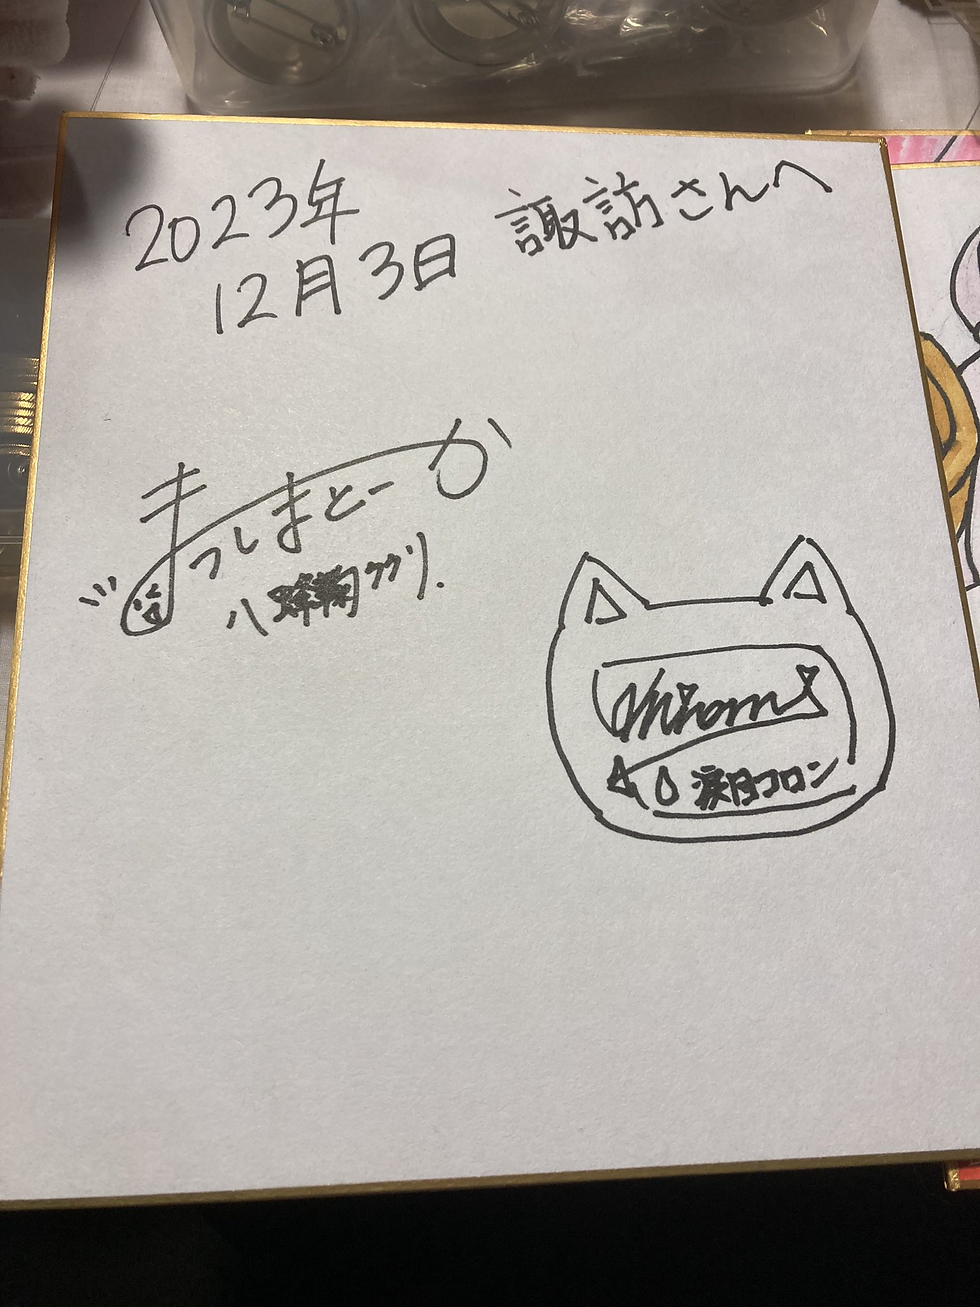 2023年
12月3日
諏訪さんへ
まつしまとーか
ククリ.
涙月コロン